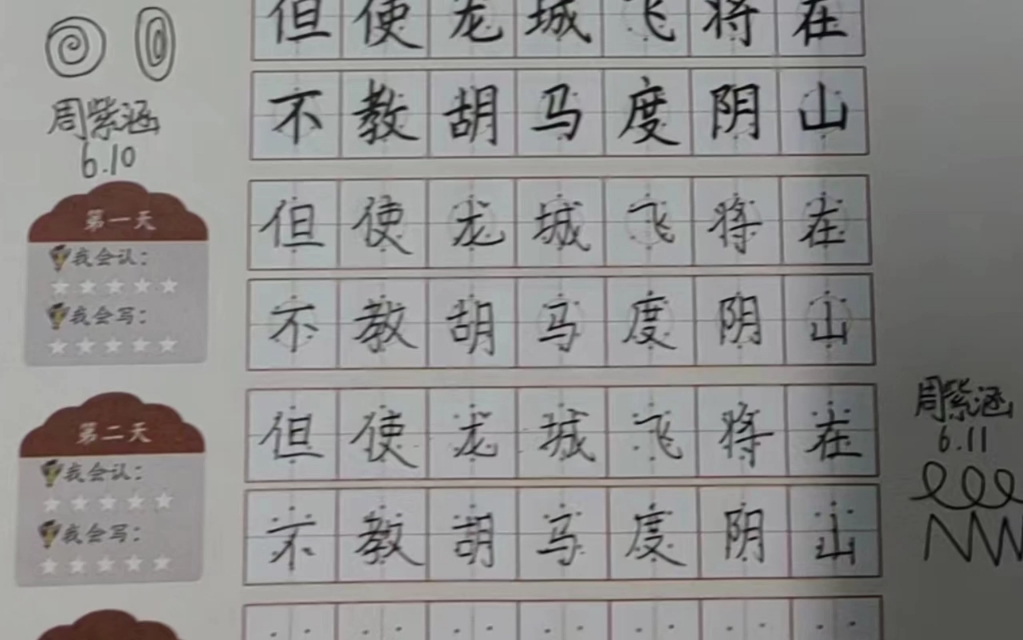 但使龙城飞将在
不教胡马度阴山
周紫涵
6.10
第一天
我会认：
我会写：
但使龙城飞将在
不教胡马度阴山
第二天
我会认：
我会写：
但使龙城飞将在
不教胡马度阴山
周紫涵
6.11